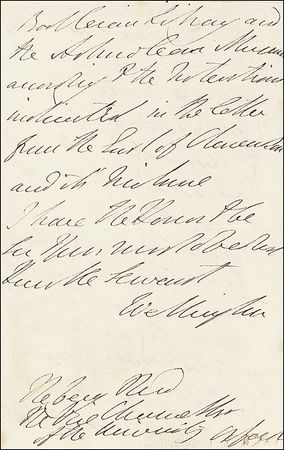 Bodleian Library and
the Ashmolean Museum
according to the Intentions
indicated in the letter
from the Earl of Clarendon
and its Inclosure
I have the Honor to be
Sir Your most obedient
Humble Servant
Wellington
The Vice Chancellor
of the University Oxford